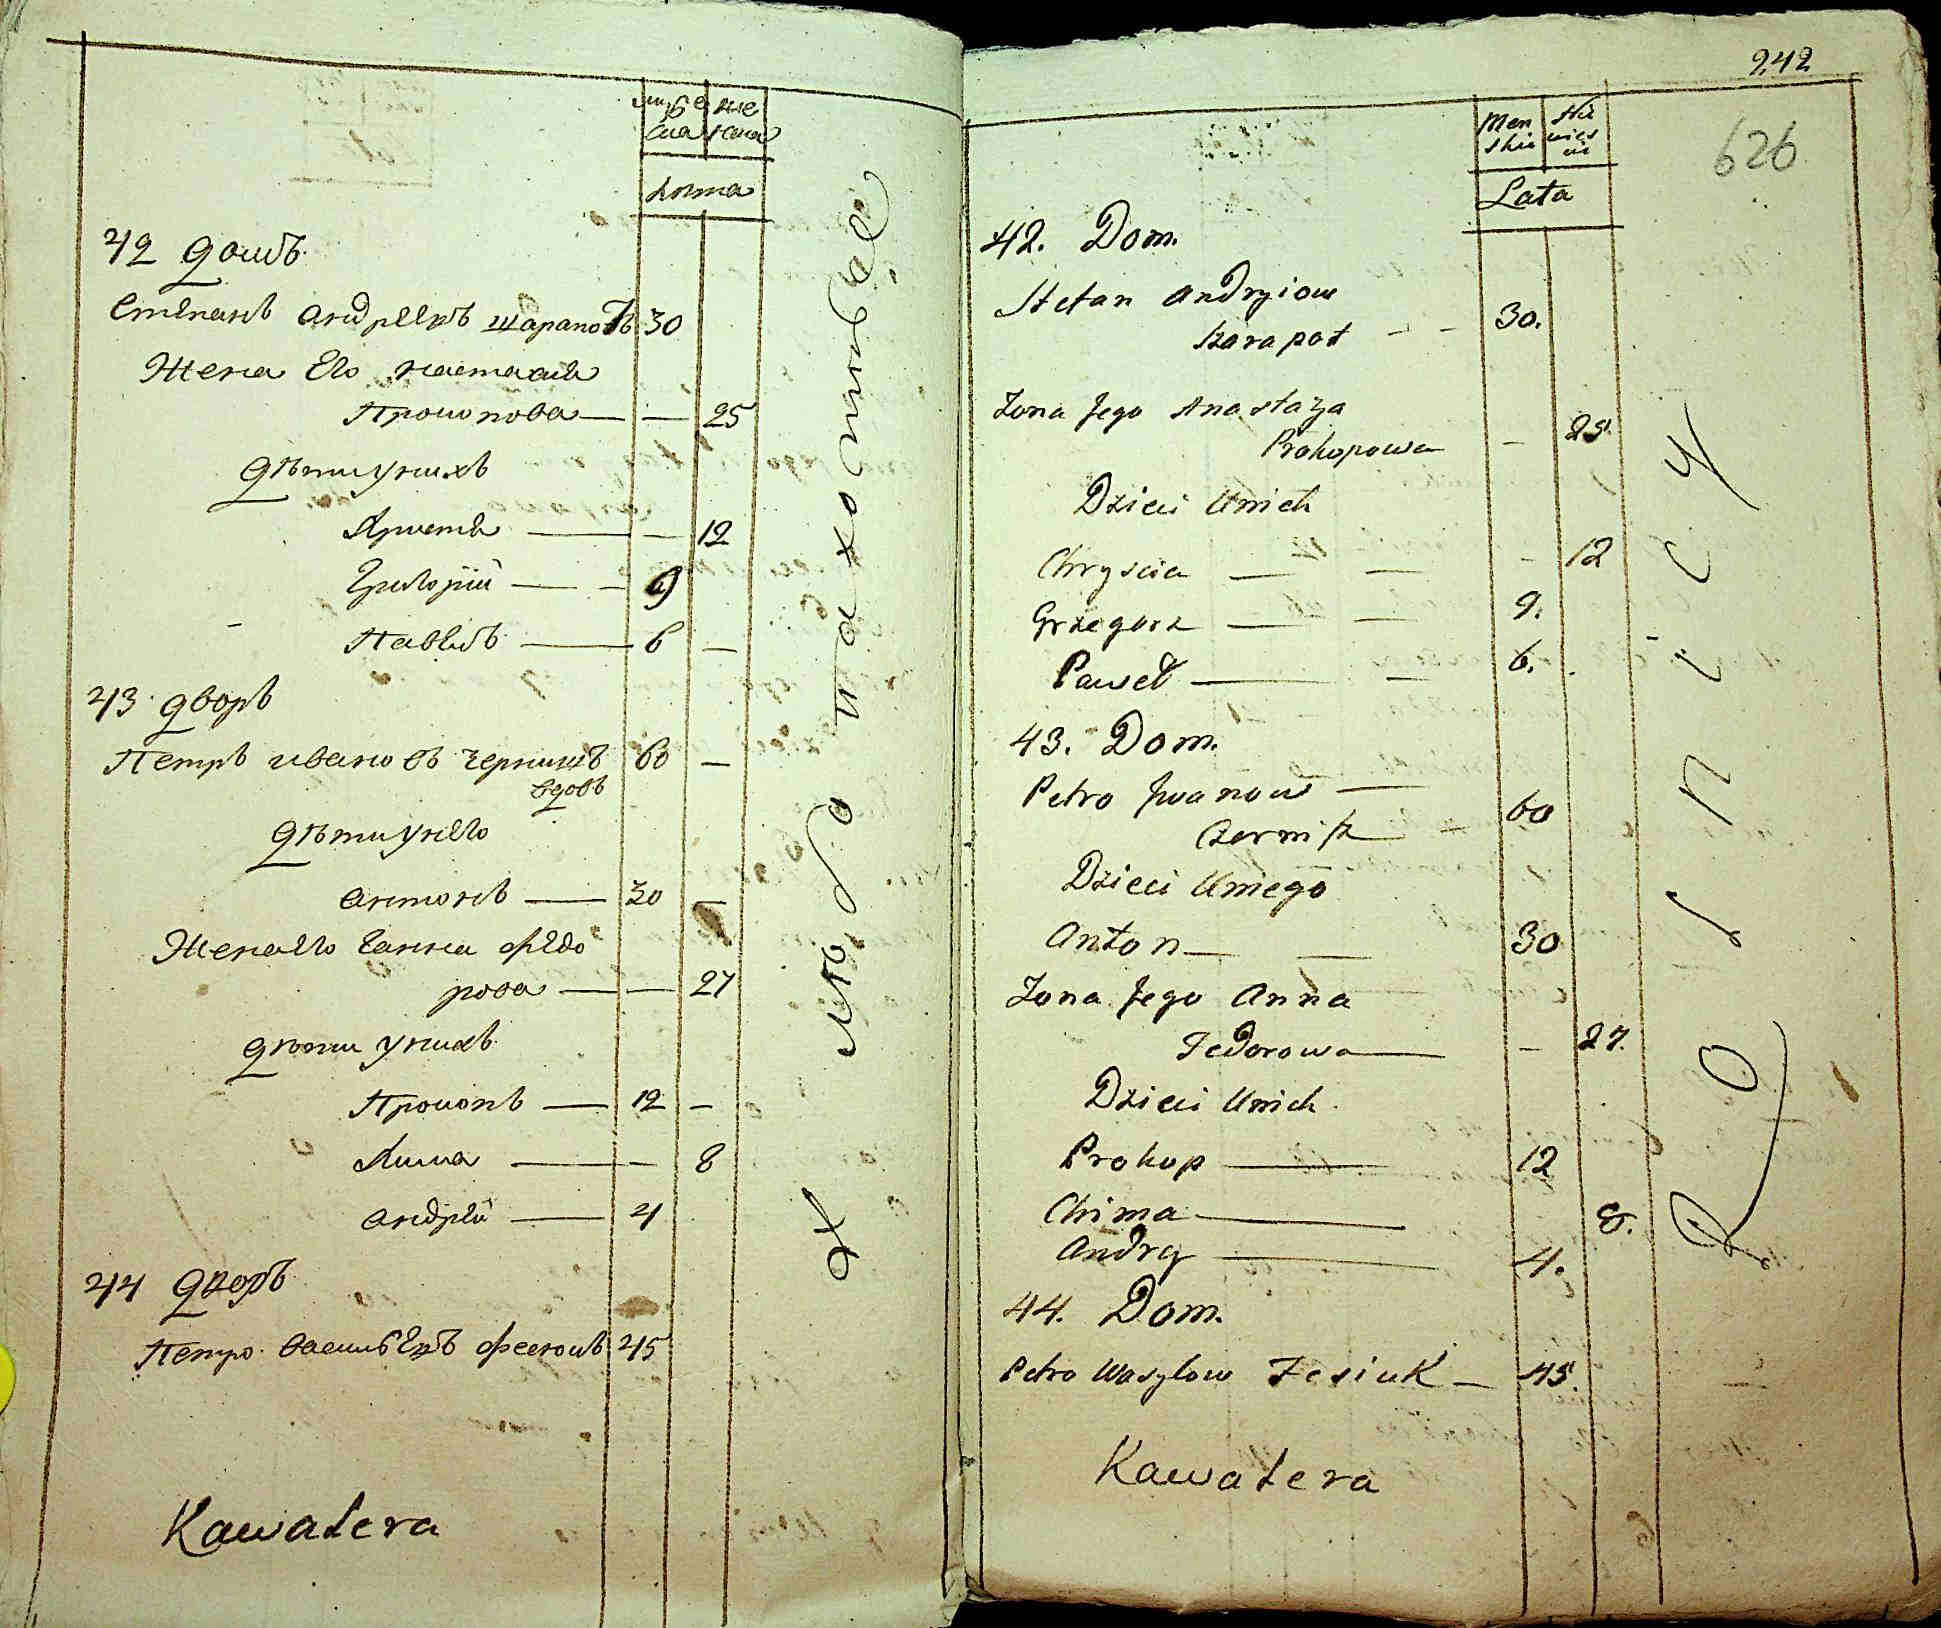 мужес
ка
жен
ска
лѣта
42 домъ
Степанъ андрѣевъ шарапотъ 30
Жена Его настасия
Прокопова — — 25
дѣти у нихъ
Христя — — 12
Григорій — — 9
Павелъ — 6 —
43 дворъ
Петръ ивановъ чернишъ 60 —
вдовъ
дѣти у него
антонъ — 30 —
Жена его Ганна Федо
рова — — 27
дѣти у нихъ
Прокопъ — 12 —
Хима — — 8
андрѣй — 4
44 дворъ
Петро васильевъ Фесюкъ 45
Kawalera
242
626
Men
skie
Lata
42. Dom.
Stefan Andryiow
Szarapot - - 30.
Zona Jego Anastazya
Prokopowa - 25.
Dzieci Unich
Chryscia — — - 12
Grzegorz — — 9.
Paweł — — 6.
43. Dom.
Petro Jwanow —
Czernisz - 60
Dzieci Uniego
Anton — — 30
Zona Jego Anna
Fedorowa — - 27.
Dzieci Unich
Prokop — 12
Chima — 8.
Andry — 4.
44. Dom.
Petro Wasylow Fesiuk — 45.
Kawalera
Rośnicy